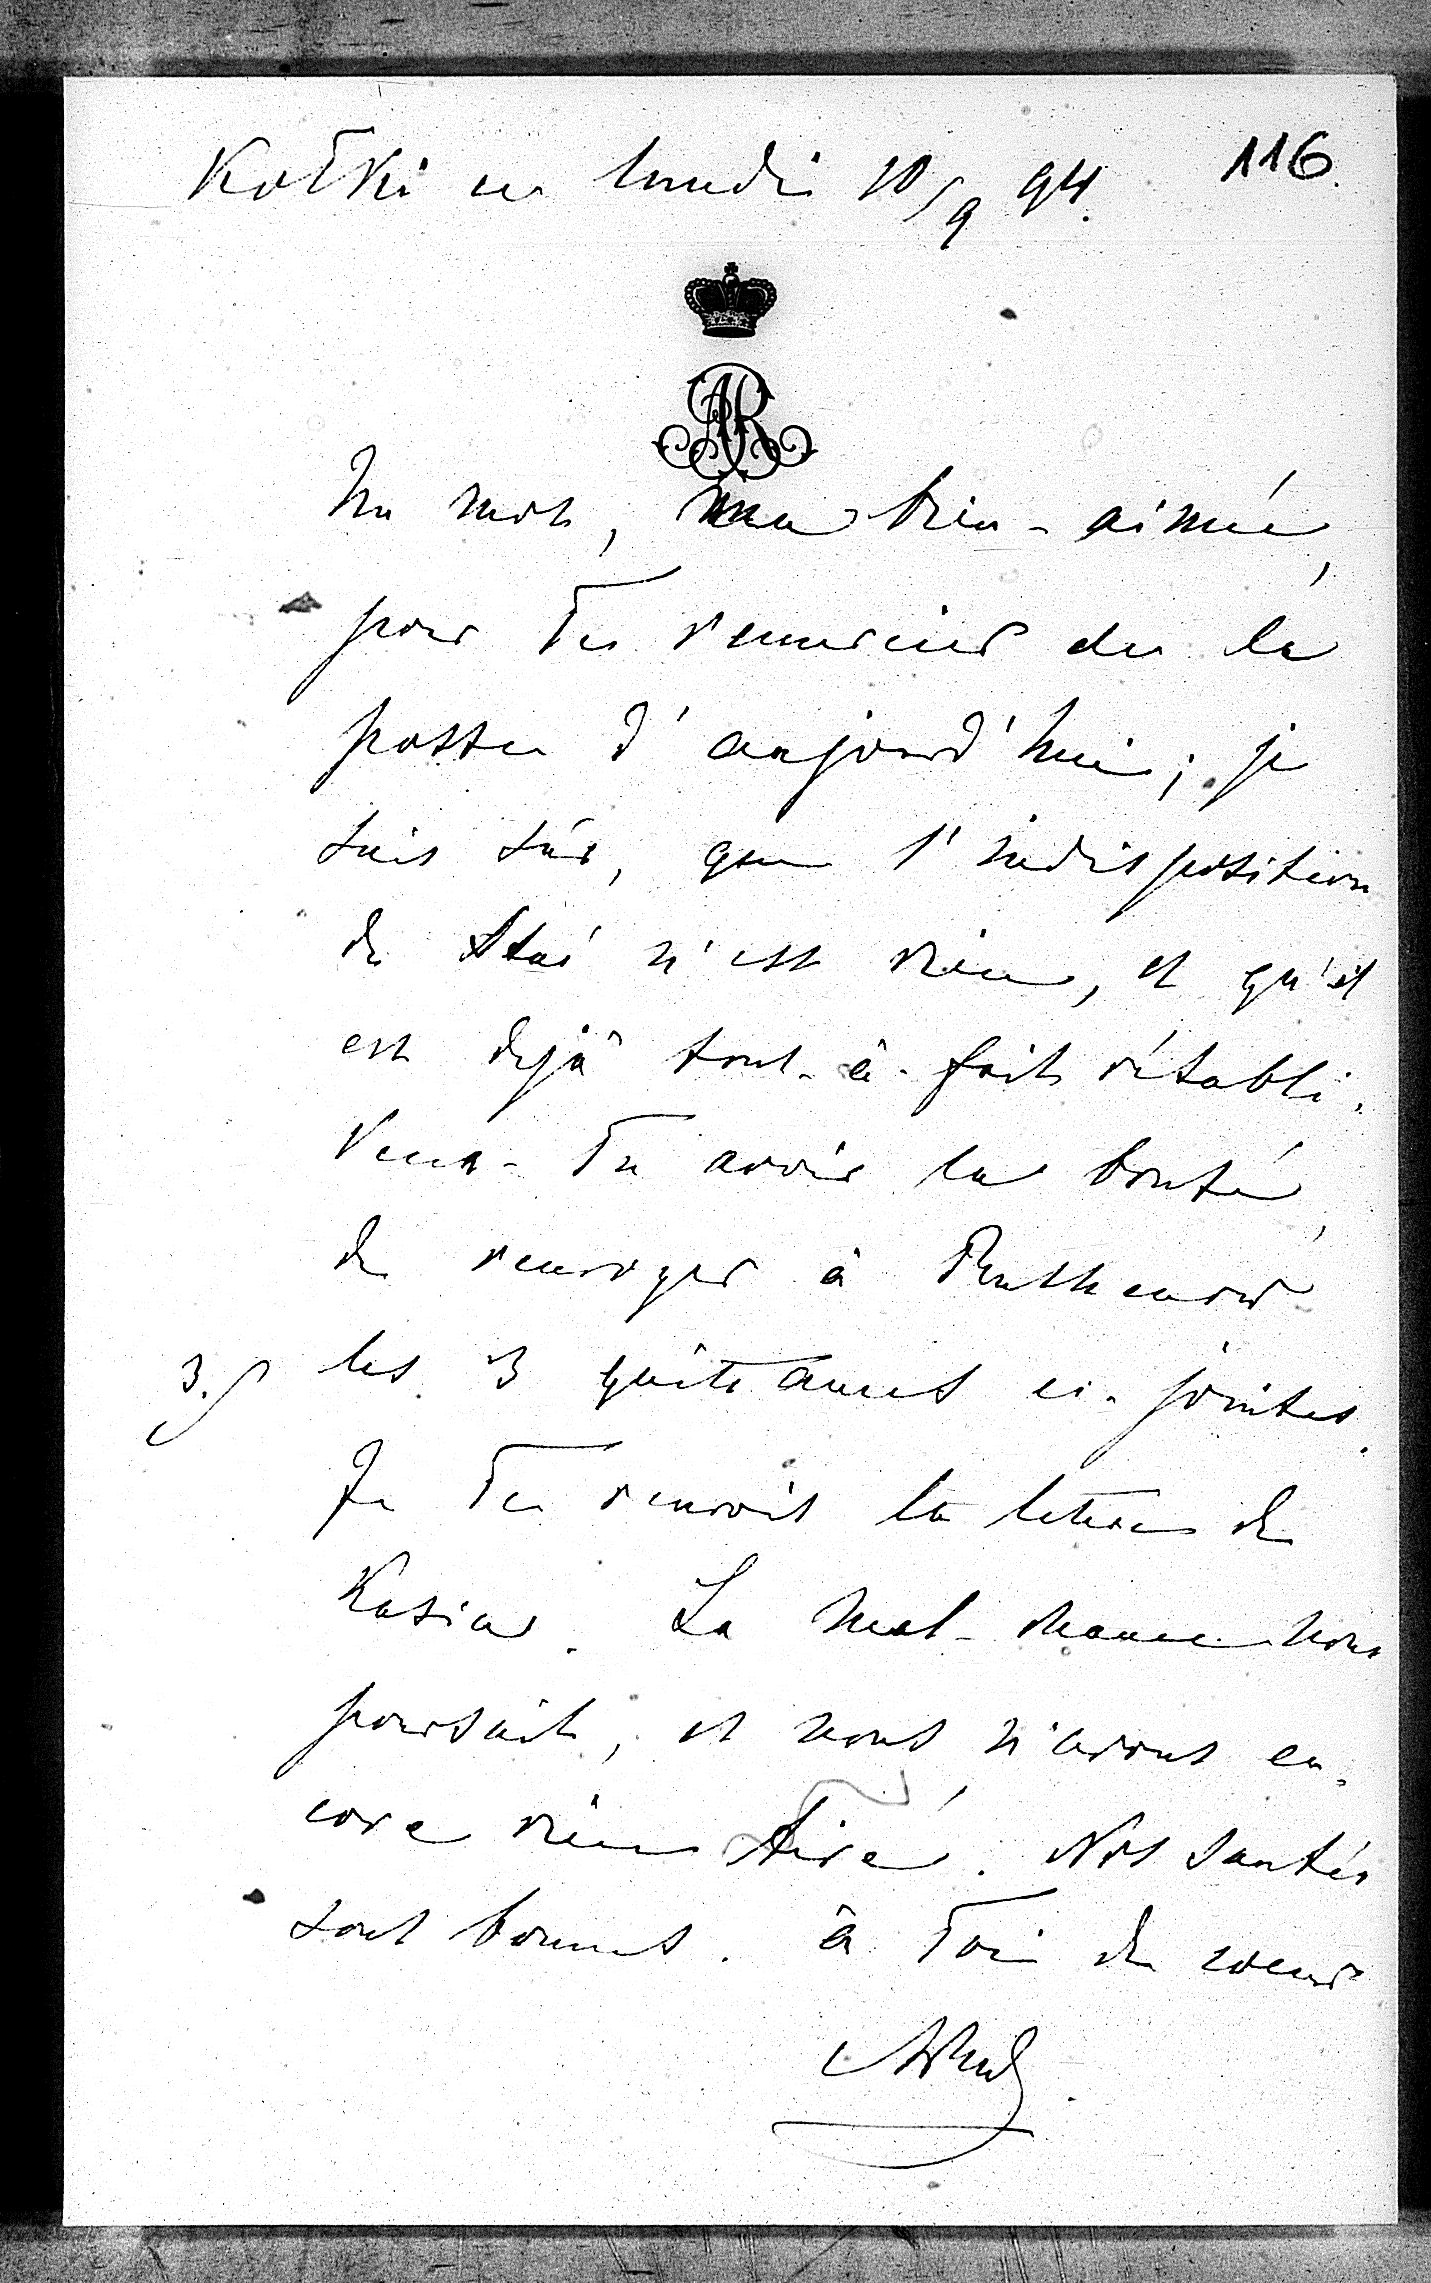 Kołki ce lundi 10/9 94. 116.
AR
Un mot, ma bien-aimée,
pour Te remercier de la
poste d'aujourd'hui; je
suis sûr, que l'indisposition
de Staś n'est rien, et qu'il
est dejà tout-à-fait rétabli.
Veux-Tu avoir la bonté,
de renvoyer à
3. les 3 quitances ci-jointes.
Je Te renvois la lettre de
Kasia. La mal-chance nous
poursuit, et nous n'avons en-
core rien tiré. Nos santés
sont bonnes. à Toi de coeur